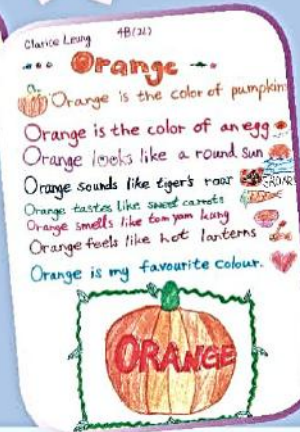 Clarice Leung 4B(21)
Orange
Orange is the color of pumpkin
Orange is the color of an egg
Orange looks like a round sun
Orange sounds like tiger's roar ROAR
Orange tastes like sweet carrots
Orange smells like tom yam kung
Orange feels like hot lanterns
Orange is my favourite colour.
ORANGE